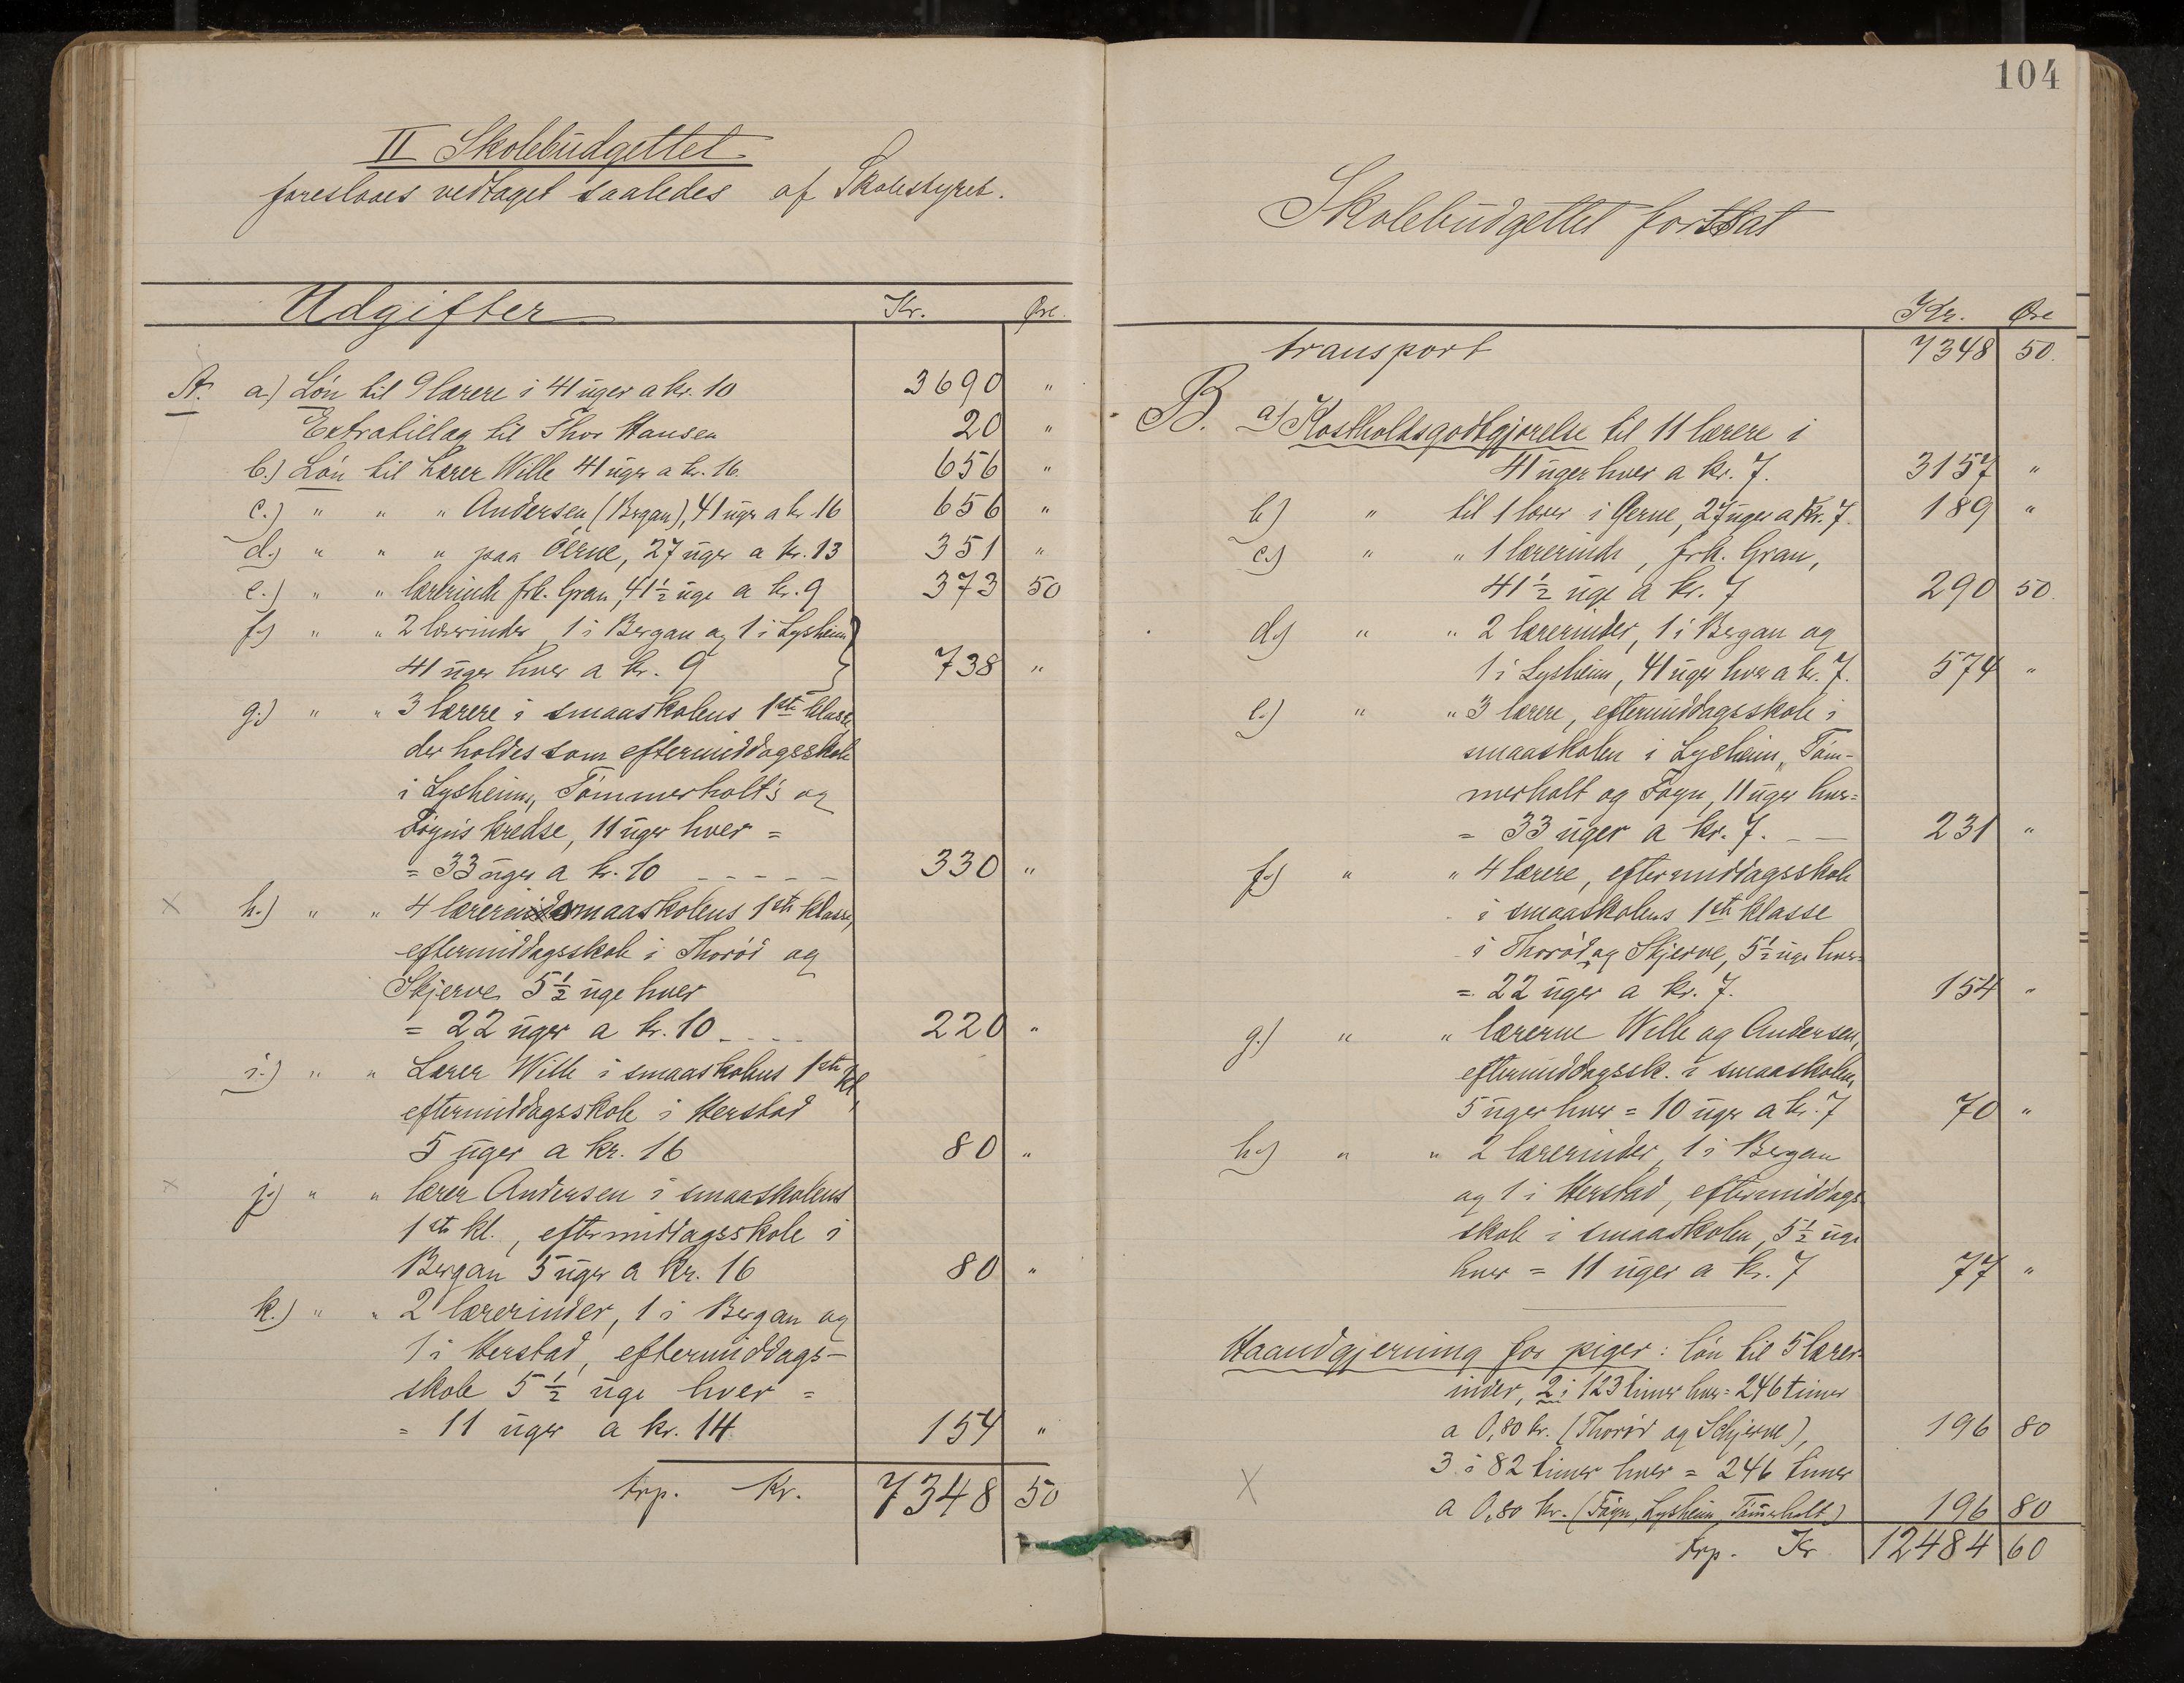 II Skolebüdgettet
foreslaaes vedtaget saaledes af Skolestyret.
Udgifter Kr. Øre.
A. a) Lön til 9 lærere i 41 üger a kr. 10 3690 "
Extratillæg til Thor Hansen 20 "
b.) Lön til Lærer Wille 41 üger a kr. 16. 656 "
c.) " " " Andersen (Bergan), 41 üger a kr. 16 656 "
d.) " " " paa Öerne, 27 üger a kr. 13 351 "
e.) " " lærerinde frk. Gran, 41 1/2 üge a kr. 9 373 50
f.) " " 2 lærerinder, 1 i Bergan og 1 i Lysheim
41 üger hver a kr. 9 738 "
g.) " " 3 lærere i smaaskolens 1ste klasse
der holdes som eftermiddagsskole
i Lysheim, Tömmerholt's og
Föyns kredse, 11 üger hver =
= 33 üger a kr. 10 - - - - - 330 "
h.) " " 4 lærere i smaaskolens 1ste klasse,
eftermiddagsskole i Thoröd og
Skjerve 5 1/2 üge hver
= 22 üger a kr. 10 - - - - 220 "
i.) " " Lærer Wille i smaaskolens 1ste kl,
eftermiddagsskole i Herstad
5 üger a kr. 16 80 "
j.) " " lærer Andersen i smaaskolens
1ste kl., eftermiddagsskole i
Bergan 5 üger a kr. 16 80 "
k.) " " 2 lærerinder, 1 i Bergan og
1 i Herstad, eftermiddags-
skole 5 1/2 üge hver =
= 11 üger a kr. 14 154 "
trp. Kr. 7348 50
104
Skolebüdgettet fortsat
Kr. Øre
transport 7348 50.
B. a) Kostholdsgodtgjörelse til 11 lærere i
41 üger hver a kr. 7. 3157 "
b.) " til 1 lærer i Øerne, 27 üger a kr. 7. 189 "
c.) " " 1 lærerinde, frk. Gran,
41 1/2 üge a kr. 7 290 50.
d.) " " 2 lærerinder, 1 i Bergan og
1 i Lysheim, 41 üger hver a kr. 7. 574 "
e.) " " 3 lærere, eftermiddagsskole i
smaaskolen i Lysheim, Töm-
merholt og Föyn, 11 üger hver =
= 33 üger a kr. 7. - - 231 "
f.) " " 4 lærere, eftermiddagsskole
i smaaskolens 1ste klasse
i Thoröd og Skjerve, 5 1/2 üge hver =
= 22 üger a kr. 7. 154 "
g.) " " lærerne Wille og Andersen,
eftermiddagssk. i smaaskolen,
5 üger hver = 10 üger a kr. 7 70 "
h.) " " 2 lærerinder, 1 i Bergan
og 1 i Herstad, eftermiddags
skole i smaaskolen, 5 1/2 üge
hver = 11 üger a kr. 7 77 "
Haandgjerning for piger: lön til 5 lærer-
inder, 2 i 123 timer hver = 246 timer
a 0,80 kr. (Thoröd og Skjerve), 196 80
3 i 82 timer hver = 246 timer
a 0,80 kr. (Föyn, Lysheim, Tömerholt) 196 80
trp. Kr 12484 60